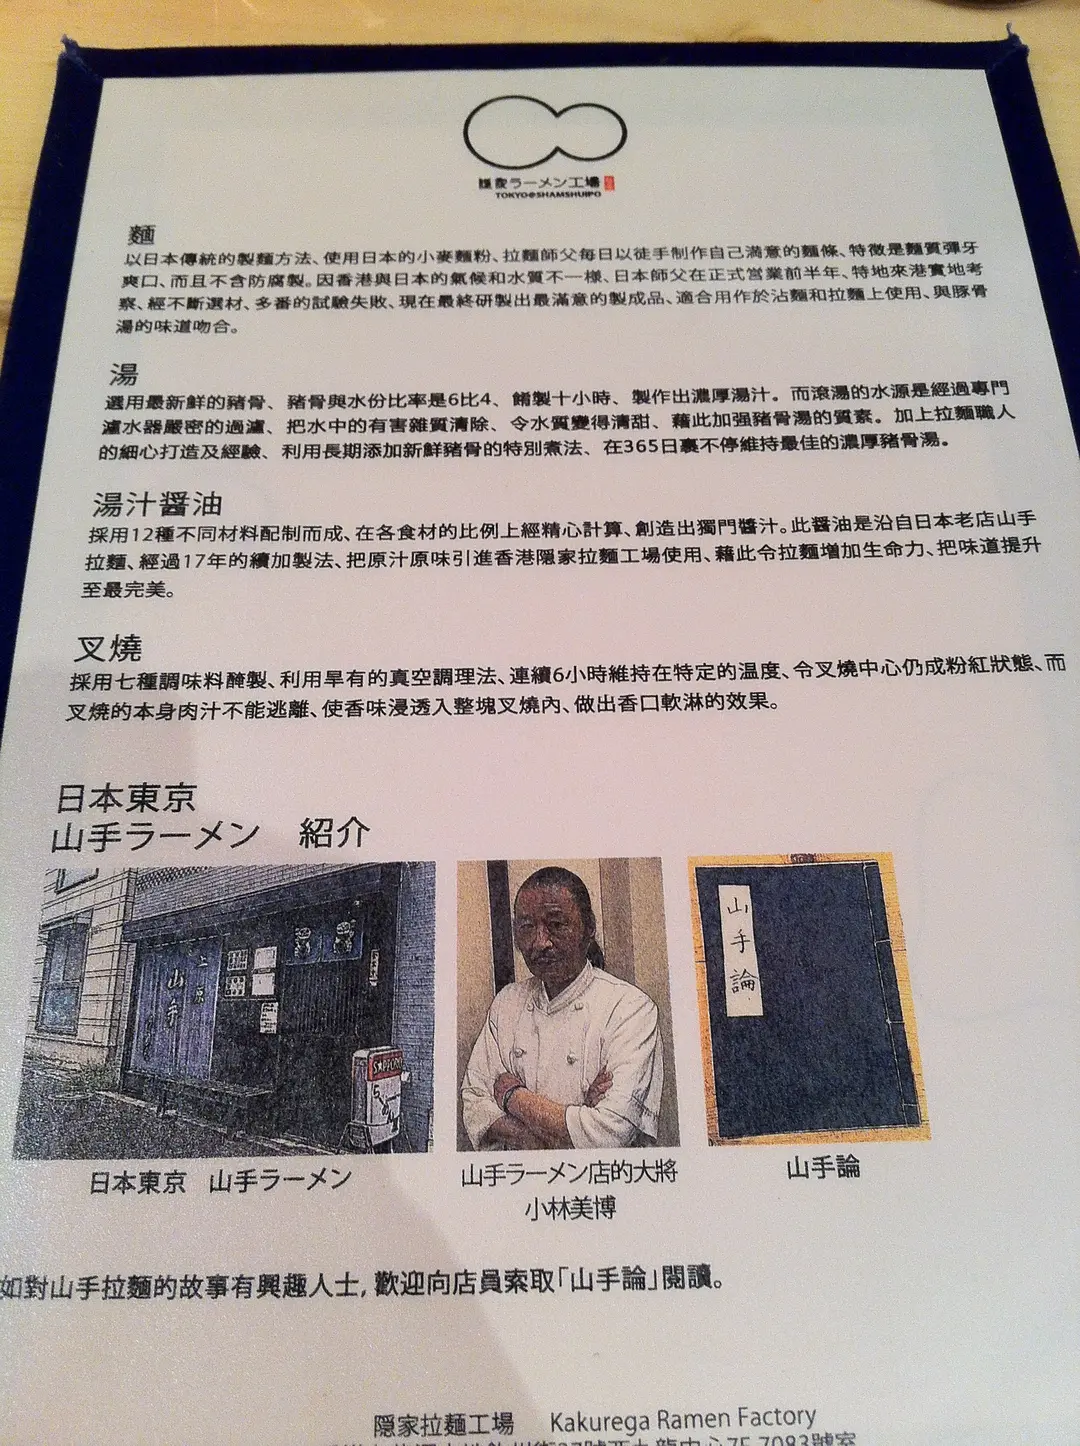 隠家ラーメン工場
TOKYO@SHAMSHUIPO
麵
以日本傳統的製麵方法、使用日本的小麥麵粉、拉麵師父每日以徒手制作自己滿意的麵條、特徵是麵質彈牙
爽口、而且不含防腐製。因香港與日本的氣候和水質不一樣、日本師父在正式營業前半年、特地來港實地考
察、經不斷選材、多番的試驗失敗、現在最終研製出最滿意的製成品、適合用作於沾麵和拉麵上使用、與豚骨
湯的味道吻合。
湯
選用最新鮮的豬骨、豬骨與水份比率是6比4、餚製十小時、製作出濃厚湯汁。而滾湯的水源是經過專門
濾水器嚴密的過濾、把水中的有害雜質清除、令水質變得清甜、藉此加强豬骨湯的質素。加上拉麵職人
的細心打造及經驗、利用長期添加新鮮豬骨的特別煮法、在365日裏不停維持最佳的濃厚豬骨湯。
湯汁醤油
採用12種不同材料配制而成、在各食材的比例上經精心計算、創造出獨門醬汁。此醤油是沿自日本老店山手
拉麵、經過17年的續加製法、把原汁原味引進香港隠家拉麵工場使用、藉此令拉麵增加生命力、把味道提升
至最完美。
叉燒
採用七種調味料醃製、利用罕有的真空調理法、連續6小時維持在特定的溫度、令叉燒中心仍成粉紅狀態、而
叉燒的本身肉汁不能逃離、使香味浸透入整塊叉燒內、做出香口軟淋的效果。
日本東京
山手ラーメン 紹介
山手
上原
SAPPORO
山手論
日本東京 山手ラーメン
山手ラーメン店的大將
小林美博
山手論
如對山手拉麵的故事有興趣人士, 歡迎向店員索取「山手論」閱讀。
隠家拉麵工場 Kakurega Ramen Factory
欽州街37號西九龍中心7F 7083號室